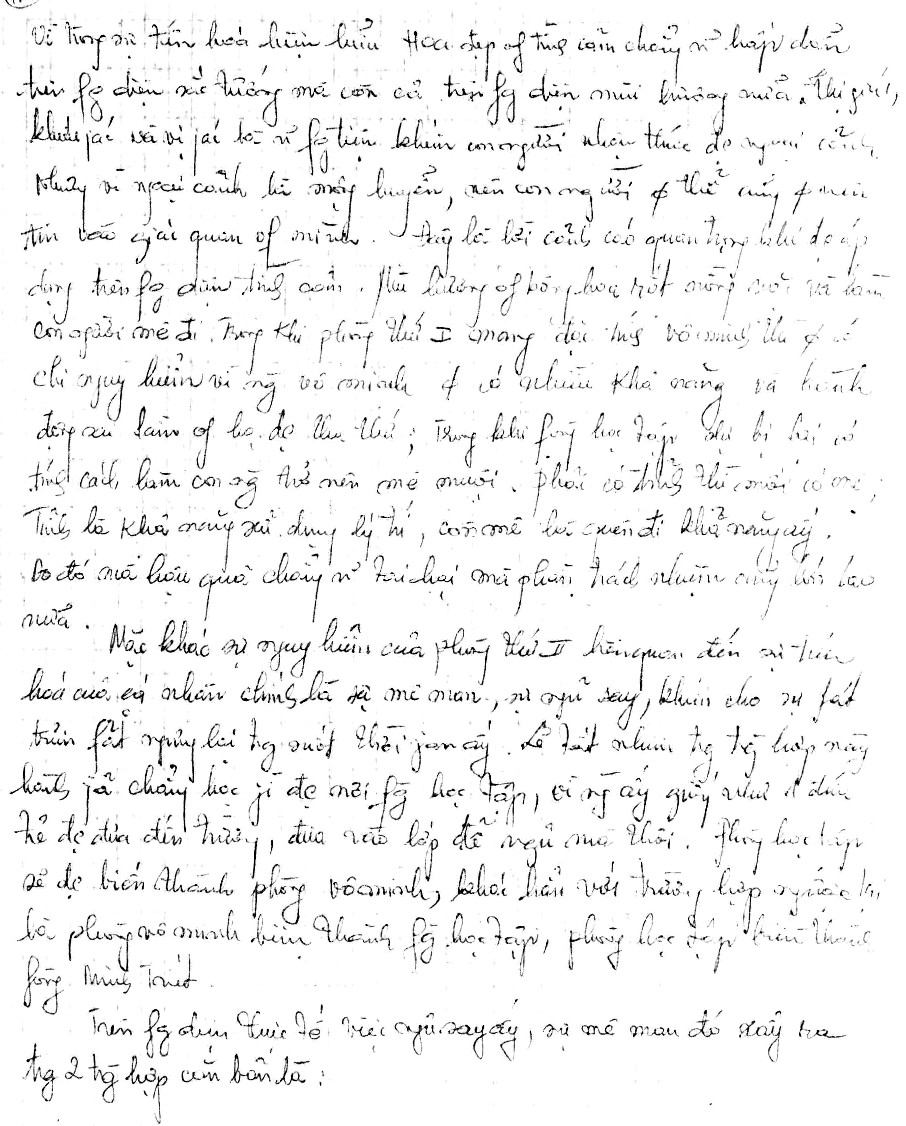 Vì trong sự tiến hoá hiện hữu Hoa đẹp of tình cảm chẳng n~ hấp dẫn
trên fg diện sắc tướng mà còn cả trên fg diện mùi hương nữa. Thị giác,
khứu jác và vị jác là n~ fg tiện khiến con người nhận thức đc ngoại cảnh
Nhưng vì ngoại cảnh là mộng huyễn, nên con người ko thể cũng ko nên
tin vào giác quan of mình. Đây là lời cảnh cáo quan trọng khi đc áp
dụng trên fg diện tình cảm. Mùi hương of bông hoa rất nồng nàn và làm
con người mê đi. Trong khi phòng thứ I mang đặc tính vô minh thì ko có
chi nguy hiểm vì ng vô minh ko có nhiều khả năng và hành
động sai lầm of họ đc tha thứ; Trong khi fòng học tập thì bị
tính cách làm con ng trở nên mê muội. Phải có tỉnh thì mới có mê;
Tỉnh là khả năng sử dụng lý trí, còn mê là quên đi khả năng ấy.
Do đó mà hậu quả chẳng n~ tai hại mà phần trách nhiệm cũng lớn lao
nữa.
Mặc khác sự nguy hiểm của phòng thứ II liên quan đến sự tiến
hoá của cá nhân chính là sự mê man, sự ngủ say, khiến cho sự fát
triển fải ngưng lại tg suốt thời jan ấy. Lẽ tất nhiên tg tg hợp này
hành jả chẳng học jì đc nơi fg học tập, vì ng ấy giống như 1 đứa
trẻ đc đưa đến trường, đưa vào lớp để ngủ mà thôi. Phòng học tập
sẽ đc biến thành phòng vô minh, khác hẳn với trường hợp ngược lại
là phòng vô minh biến thành fg học tập, phòng học tập biến thành
fòng Minh Triết.
Trên fg diện thực tế việc ngủ say ấy, sự mê man đó xảy ra
tg 2 tg hợp căn bản là: